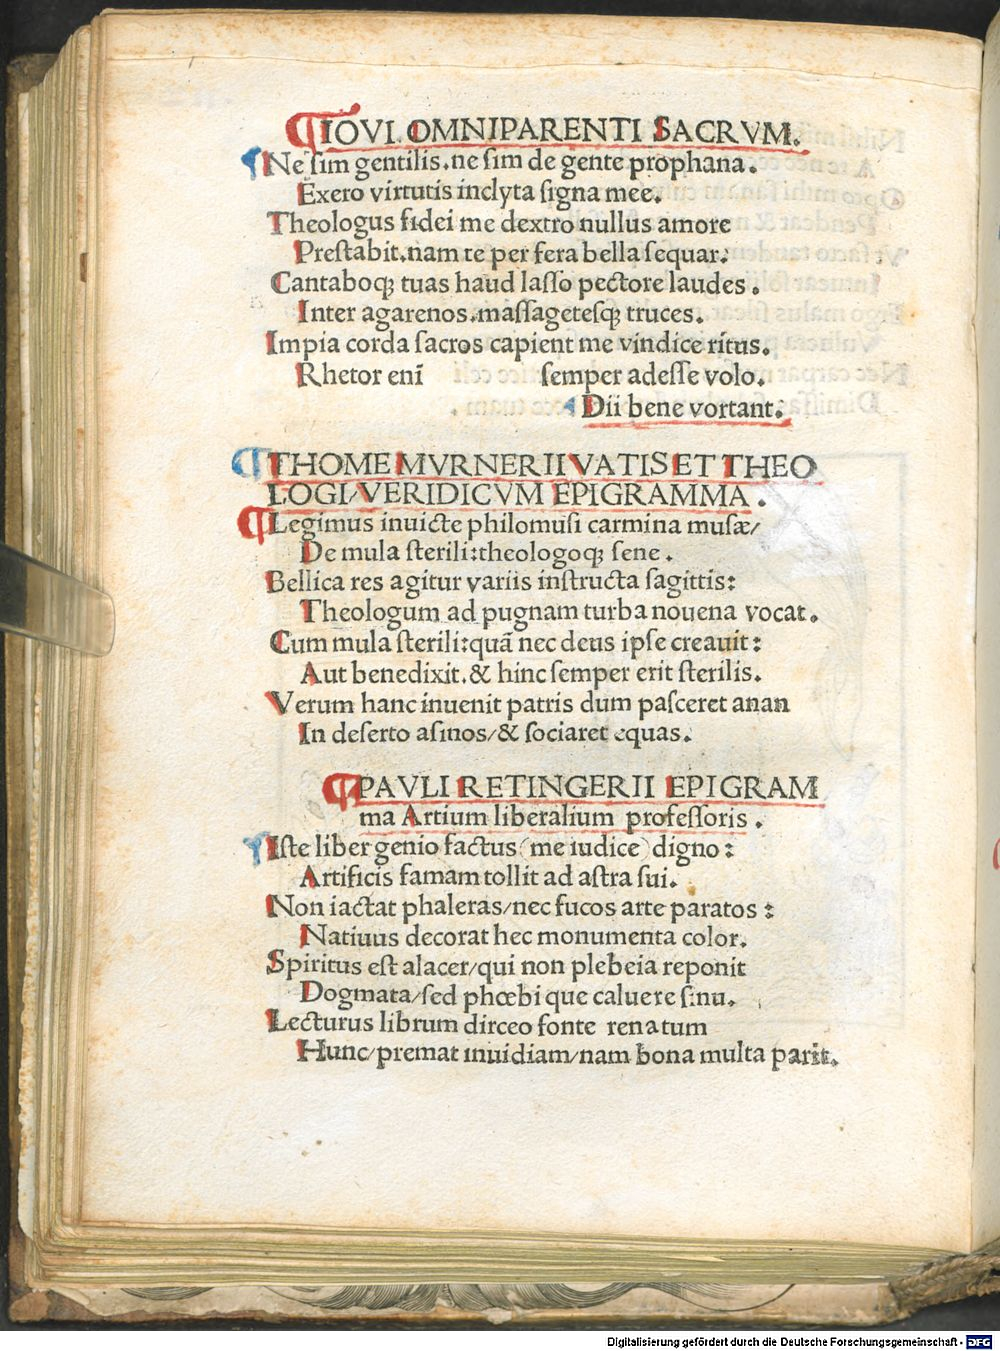 IOVI. OMNIPARENTI SACRVM.
Ne sim gentilis.ne sim de gente prophana.
Exero virtutis inclyta signa mee.
Theologus fidei me dextro nullus amore
Prestabit.nam te per fera bella sequar.
Cantaboqꝫ tuas haud lasso pectore laudes.
Inter agarenos.massagetesqꝫ truces.
Impia corda sacros capient me vindice ritus.
Rhetor enī semper adesse volo.
Dii bene vortant.
THOME MVRNERII VATIS ET THEO
LOGI/VERIDICVM EPIGRAMMA.
Legimus inuicte philomusi carmina musæ/
De mula sterili:theologoqꝫ sene.
Bellica res agitur variis instructa sagittis:
Theologum ad pugnam turba nouena vocat.
Cum mula sterili:quā nec deus ipse creauit:
Aut benedixit.& hinc semper erit sterilis.
Verum hanc inuenit patris dum pasceret anan
In deserto asinos/& sociaret equas.
PAVLI RETINGERII EPIGRAM
ma Artium liberalium professoris.
Iste liber genio factus (me iudice) digno:
Artificis famam tollit ad astra sui.
Non iactat phaleras/nec fucos arte paratos:
Natiuus decorat hec monumenta color.
Spiritus est alacer/qui non plebeia reponit
Dogmata/sed phœbi que caluere sinu.
Lecturus librum dirceo fonte renatum
Hunc/premat inuidiam/nam bona multa parit.
Digitalisierung gefördert durch die Deutsche Forschungsgemeinschaft - DFG